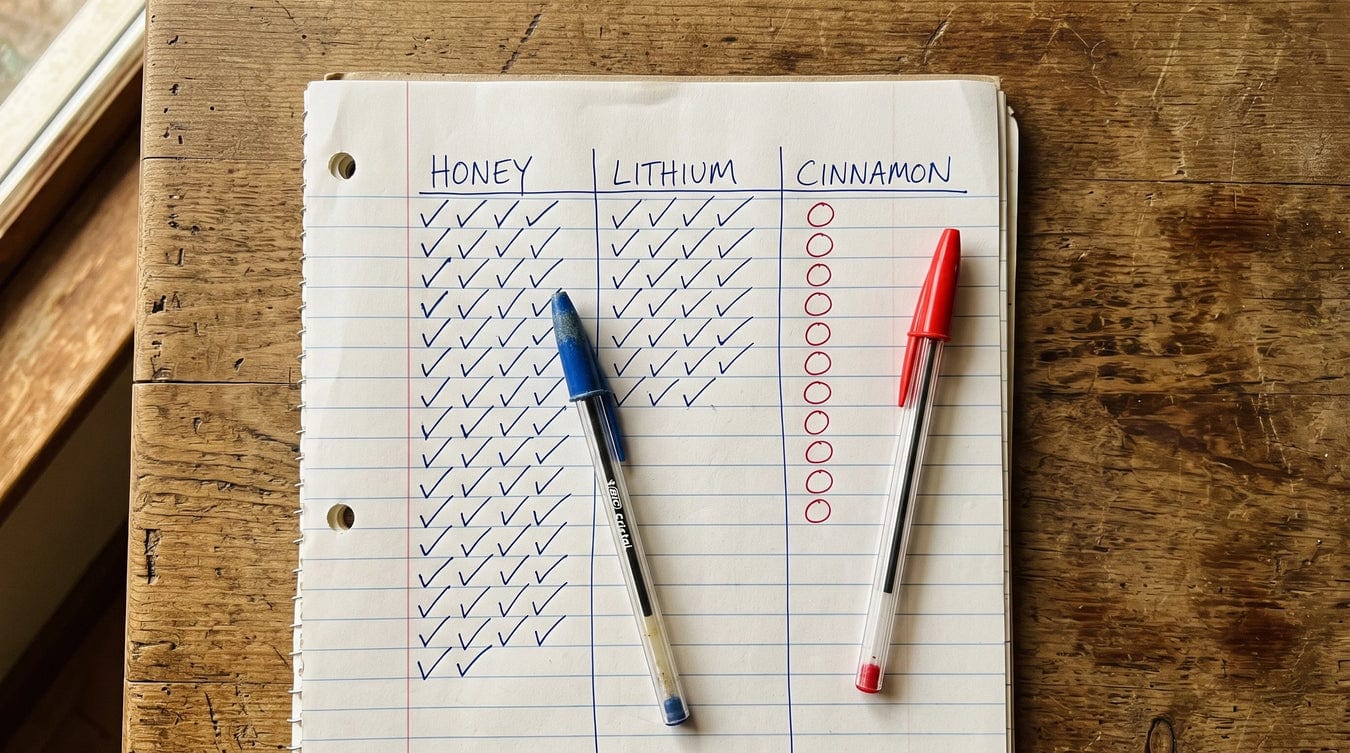 HONEY LITHIUM CINNAMON
✓ ✓ ✓ ✓ ✓ ✓ ✓ ✓ ○
✓ ✓ ✓ ✓ ✓ ✓ ✓ ✓ ○
✓ ✓ ✓ ✓ ✓ ✓ ✓ ✓ ○
✓ ✓ ✓ ✓ ✓ ✓ ✓ ✓ ○
✓ ✓ ✓ ✓ ✓ ✓ ✓ ✓ ○
✓ ✓ ✓ ✓ ✓ ✓ ✓ ✓ ○
✓ ✓ ✓ ✓ ✓ ✓ ✓ ○
✓ ✓ ✓ ✓ ○
✓ ✓ ✓ ✓ ○
✓ ✓ ✓ ✓ ○
✓ ✓ ✓ ✓ ○
✓ ✓ ✓ ✓
✓ ✓ ✓ ✓
✓ ✓ ✓ ✓
✓ ✓ ✓ ✓
✓ ✓
BIC Cristal